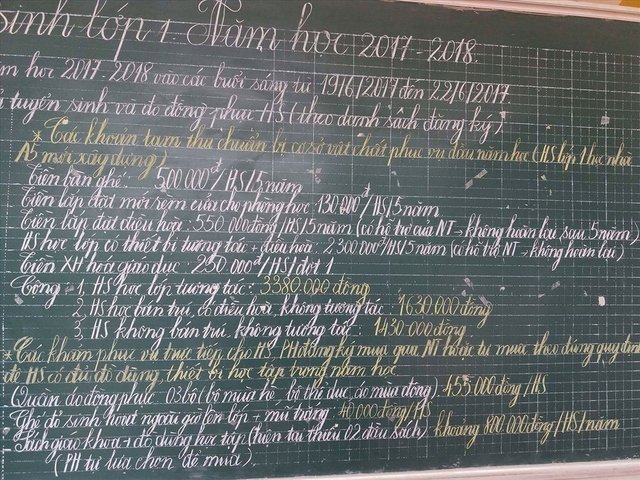 sinh lớp 1 Năm học 2017-2018.
học 2017-2018 vào các buổi sáng từ 19/6/2017 đến 22/6/2017.
tuyển sinh và đo đồng phục HS (theo danh sách đăng ký).
* Các khoản tạm thu chuẩn bị cơ sở vật chất phục vụ đầu năm học (HS lớp 1 học nhà
A5 mới xây dựng)
Tiền bàn ghế: 500 000đ/HS/5 năm
Tiền lắp đặt mới rèm cửa cho phòng học: 130.000đ/HS/5 năm
Tiền lắp đặt điều hòa: 550 000đồng/HS/5 năm (có hỗ trợ của NT - không hoàn lại sau 5 năm)
HS học lớp có thiết bị tương tác + điều hòa: 2,300 000đ/HS/5 năm (có hỗ trợ NT - không hoàn lại)
Tiền XH hóa giáo dục: 250 000đ/HS/đợt 1
Tổng: 1, HS học lớp tương tác: 3380.000 đồng
2, HS học bán trú, có điều hòa, không tương tác: 1630.000 đồng
3, HS không bán trú, không tương tác: 1430.000 đồng
* Các khoản phục vụ trực tiếp cho HS, PH đăng ký mua qua NT hoặc tự mua theo đúng quy định
để HS có đủ đồ dùng, thiết bị học tập trong năm học
Quần áo đồng phục 03 bộ (bộ mùa hè, bộ thể dục, áo mùa đông): 455 000 đồng/HS
Ghế để sinh hoạt ngoài giờ lên lớp + mũ trắng: 40.000 đồng/HS
Sách giáo khoa + đồ dùng học tập (hiện tại thiếu 02 đầu sách) khoảng 800.000đồng/HS/năm
(PH tự lựa chọn để mua).